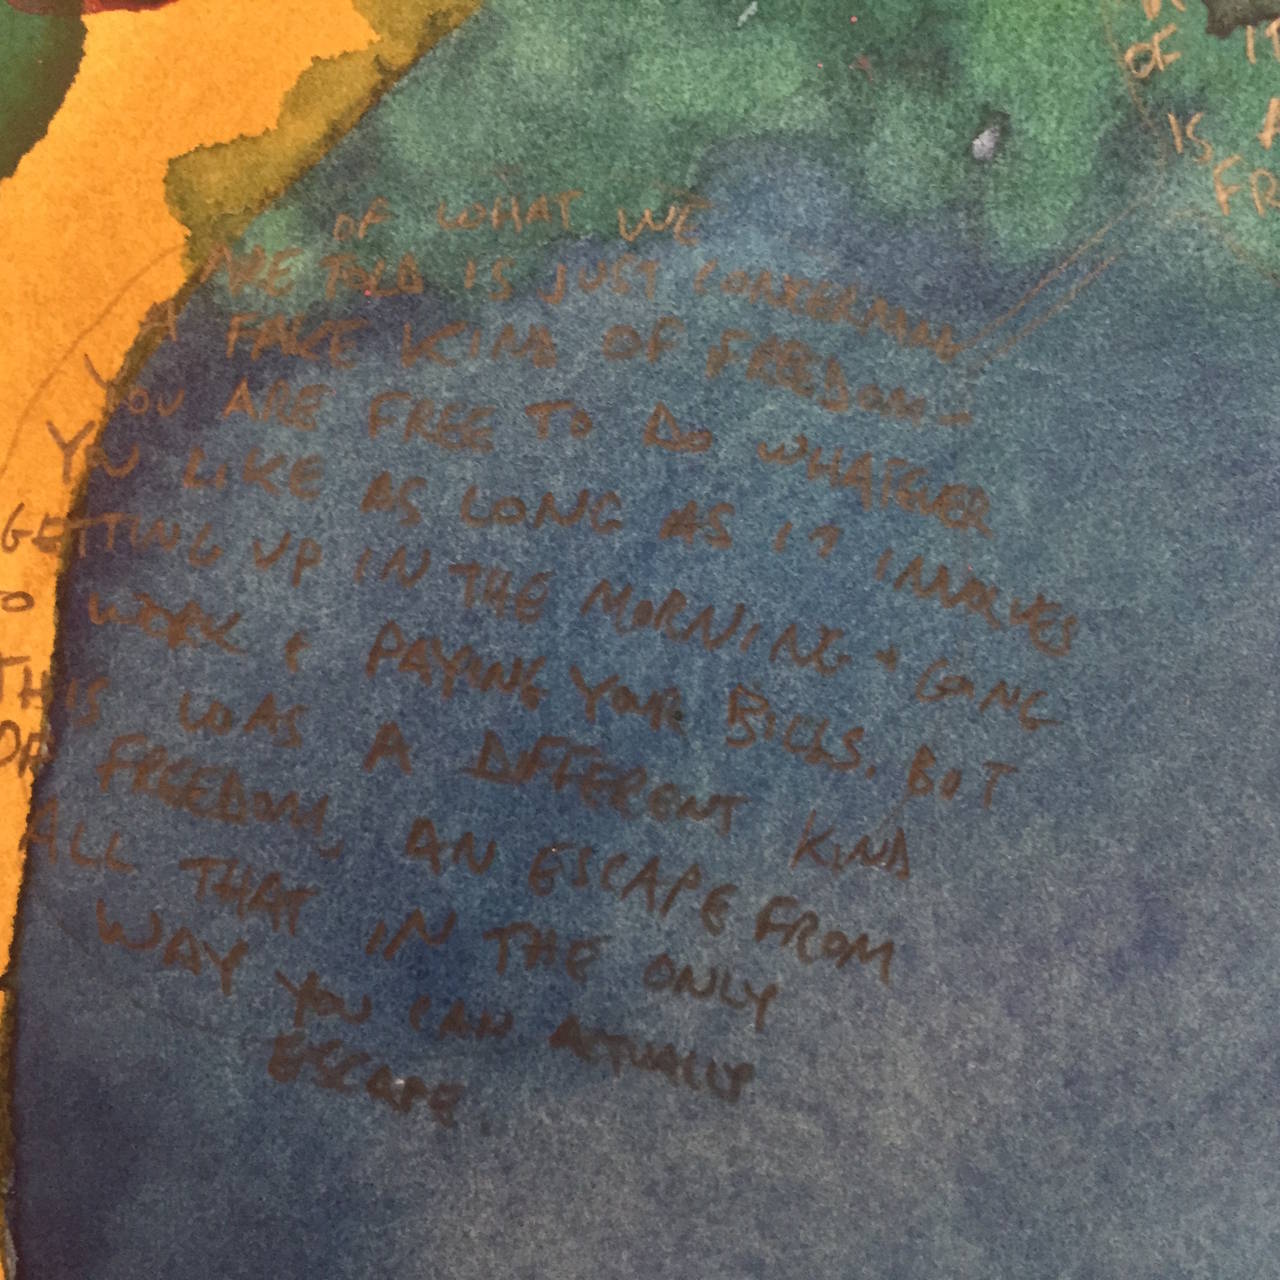 OF IT
IS A
FR
OF WHAT WE
ARE TOLD IS JUST
A FAKE KIND OF FREEDOM -
YOU ARE FREE TO DO WHATEVER
YOU LIKE AS LONG AS IT INVOLVES
GETTING UP IN THE MORNING + GOING
TO WORK + PAYING YOUR BILLS. BUT
THIS WAS A DIFFERENT KIND
OF FREEDOM, AN ESCAPE FROM
ALL THAT IN THE ONLY
WAY YOU CAN ACTUALLY
ESCAPE.